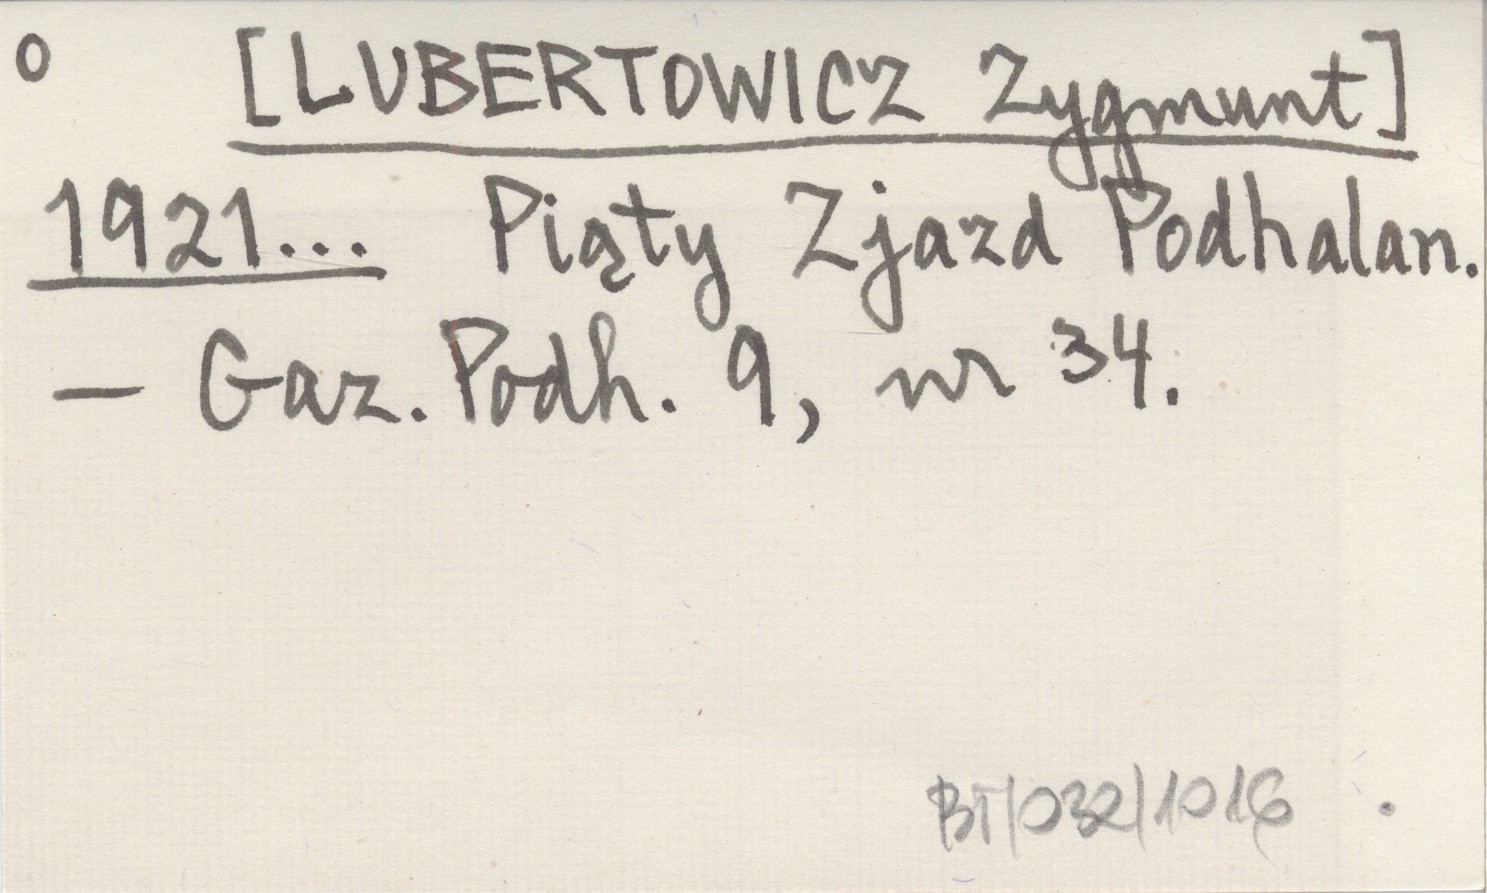 o [LUBERTOWICZ Zygmunt]
1921... Piąty Zjazd Podhalan.
— Gaz. Podh. 9, nr 34.
BT/032/1016